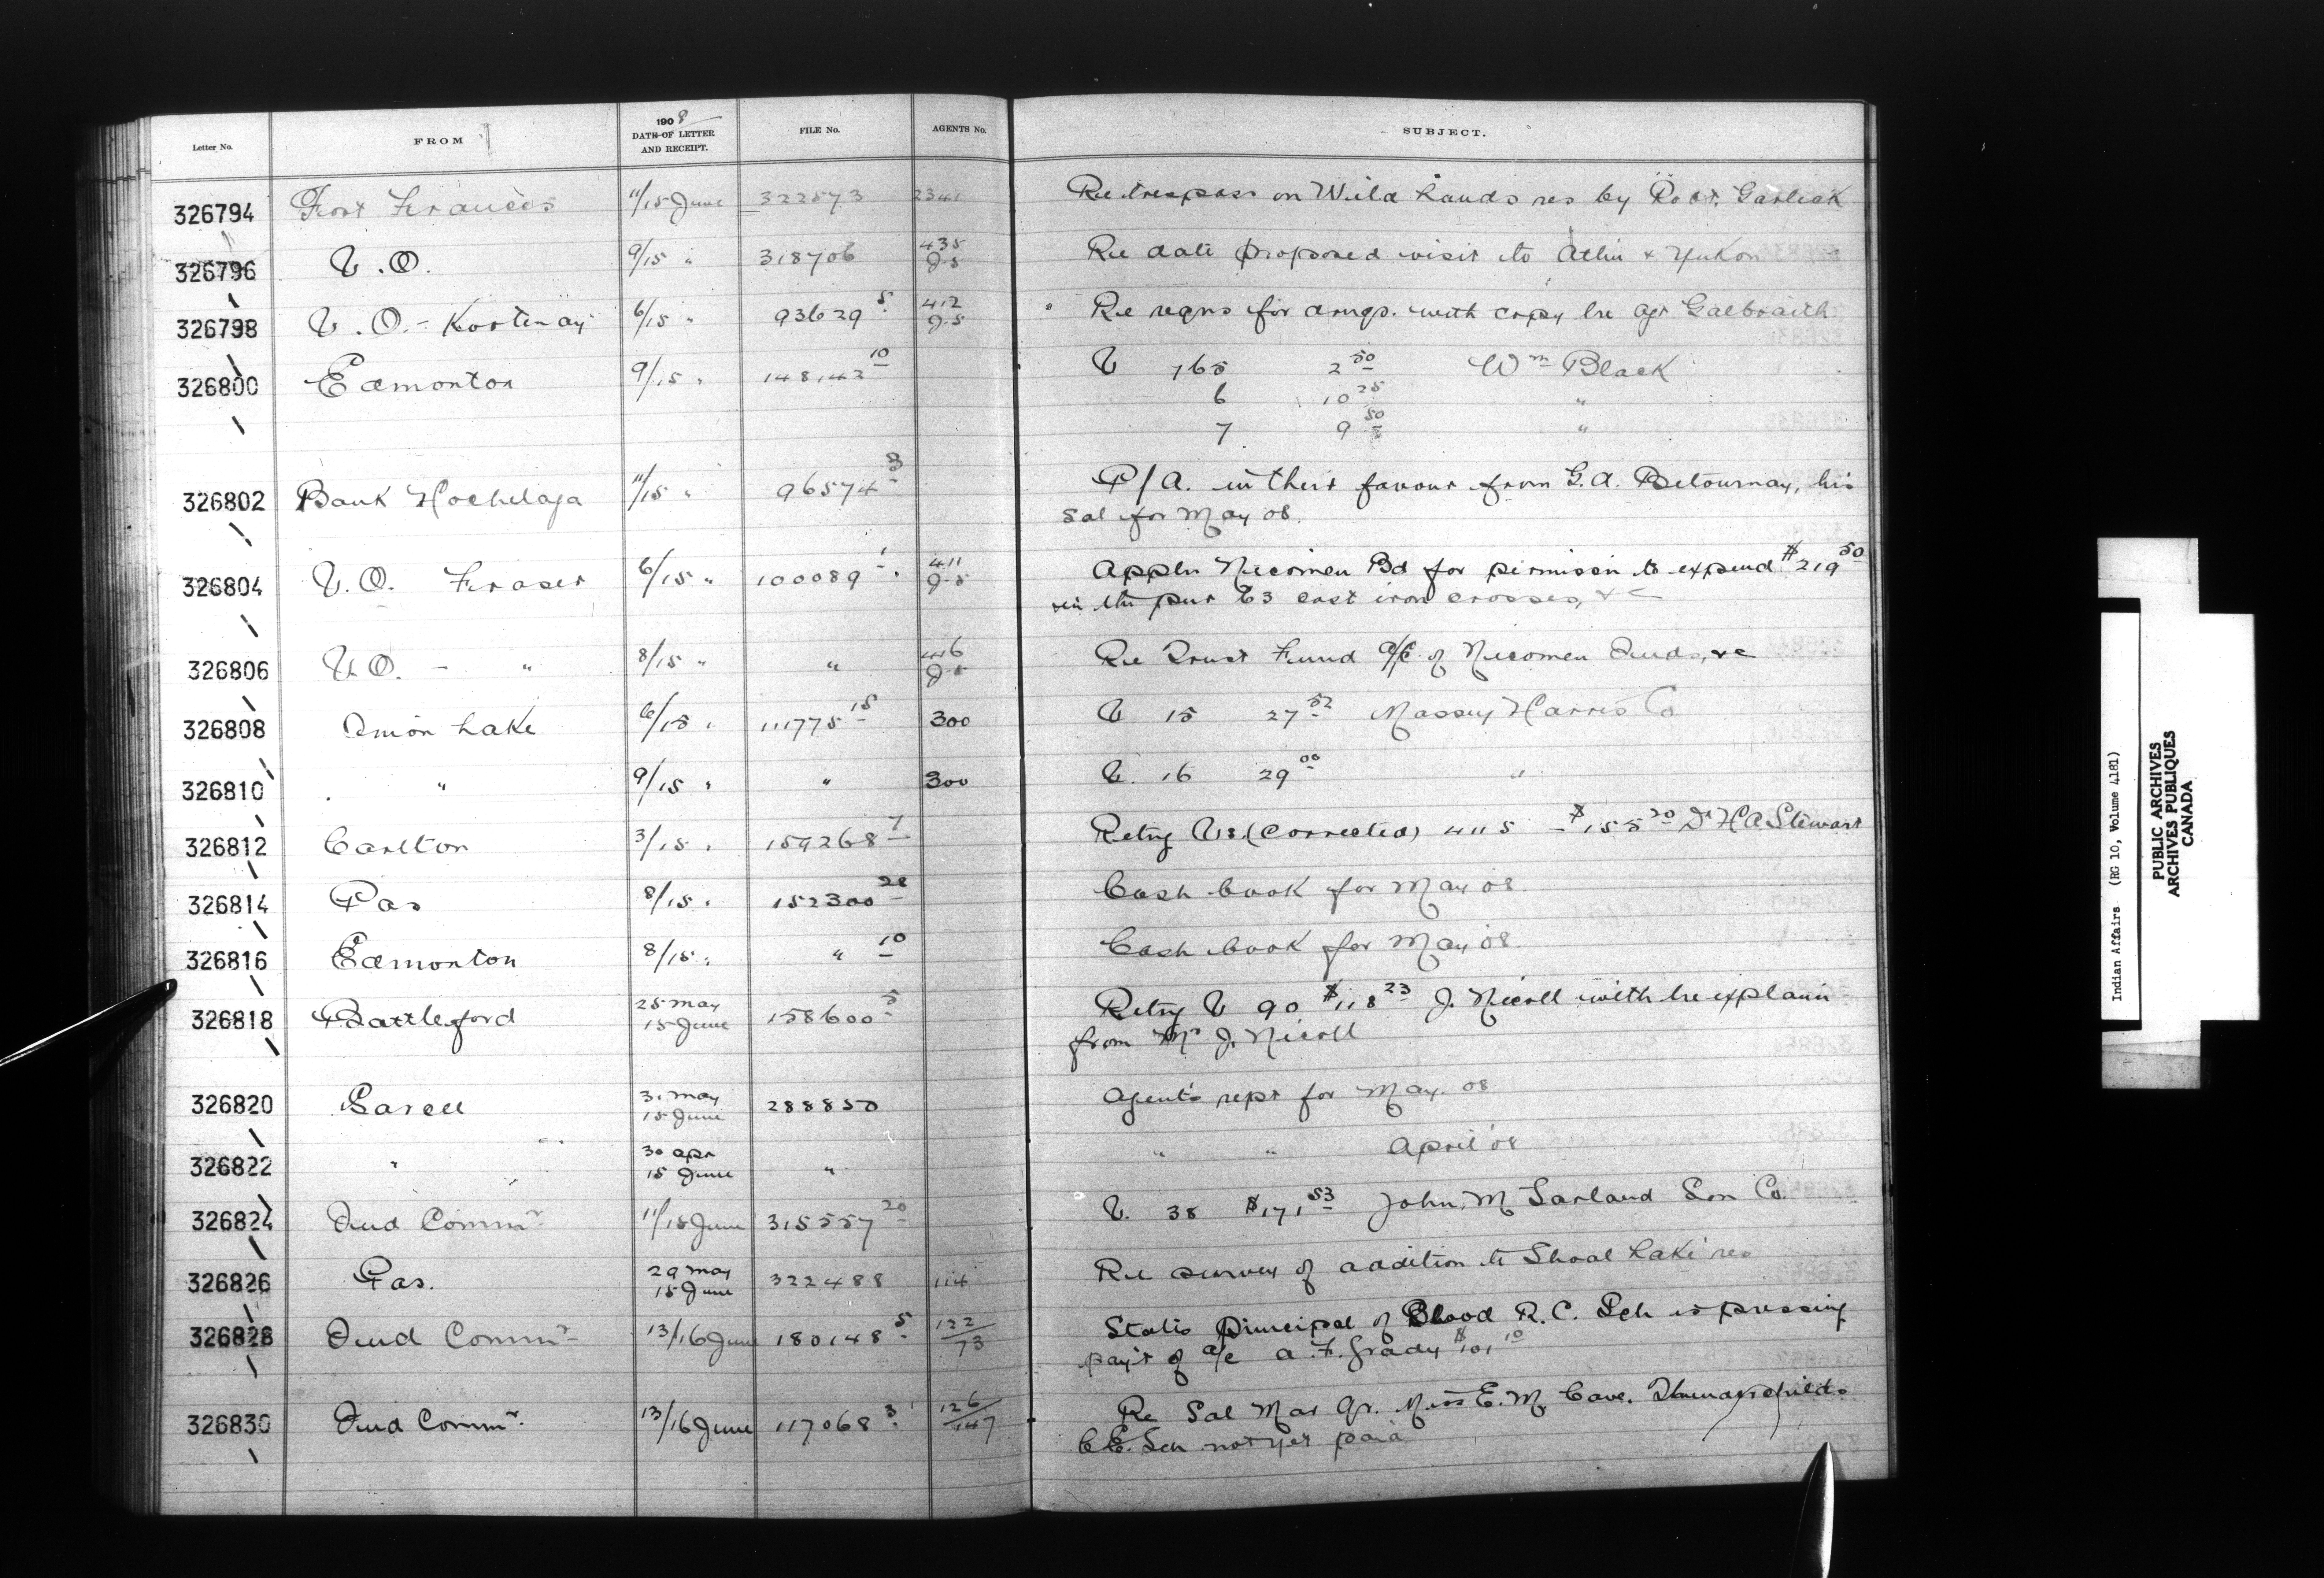 1908
Letter No. FROM DATE OF LETTER AND RECEIPT. FILE No. AGENTS No. SUBJECT.
326794 Fort Frances 11/15 June 322573 2341 Re trespass on Wild Lands res by Robt. Garlick
326796 V.O. 9/15 " 318706 435 J.S Re date proposed visit to Atlin & Yukon
326798 V.O. - Kootenay 6/15 " 93629 5 412 J.S Re reqns for drugs. with copy lre Agt Galbraith
326800 Edmonton 9/15 " 148142 10 V 765 2 50 Wm Black
6 10 25 "
7 9 50 "
326802 Bank Hochelaga 11/15 " 96574 3 P/A. in their favour from G.A. Betournay, his
sal for May 08.
326804 V.O. Fraser 6/15 " 100089 1 411 J.S Appln Nicomen Bd for permissn to expend $219 50
in the pur 63 cast iron crosses, &c
326806 V.O. - " 8/15 " " 416 J.S Re Trust Fund a/c of Nicomen Inds, &c
326808 Onion Lake 6/15 " 111775 15 300 V 15 27 52 Massey Harris Co
326810 " 9/15 " " 300 V. 16 29 00 "
326812 Carlton 3/15 " 159268 7 Retng Vs (corrected) 411 5 - $155 20 Dr H A Stewart
326814 Pas 8/15 " 152300 28 Cash book for May 08
326816 Edmonton 8/15 " " 10 Cash book for May 08.
326818 Battleford 25 May 15 June 158600 5 Retng V 90 $118 23 J. Nicoll with lre explann
from Mr J. Nicoll
326820 Sarcee 31 May 15 June 288850 Agent's rept for May. 08
326822 " 30 Apr 15 June " " " April 08
326824 Ind Commr 11/15 June 315557 20 V. 38 $171 53 John. M Garland Son Co
326826 Pas. 29 May 15 June 322488 114 Re survey of addition to Shoal Lake res
326828 Ind Commr 13/16 June 180148 5 122/73 States principal of Blood R.C. Sch is pressing
payt of a/c A.F. Grady $101 10
326830 Ind Commr 13/16 June 117068 3 126/147 Re Sal Mar Qr. Miss E.M. Cave.
C.E. Sch not yet paid
Indian Affairs (RG 10, Volume 4181)
PUBLIC ARCHIVES
ARCHIVES PUBLIQUES
CANADA